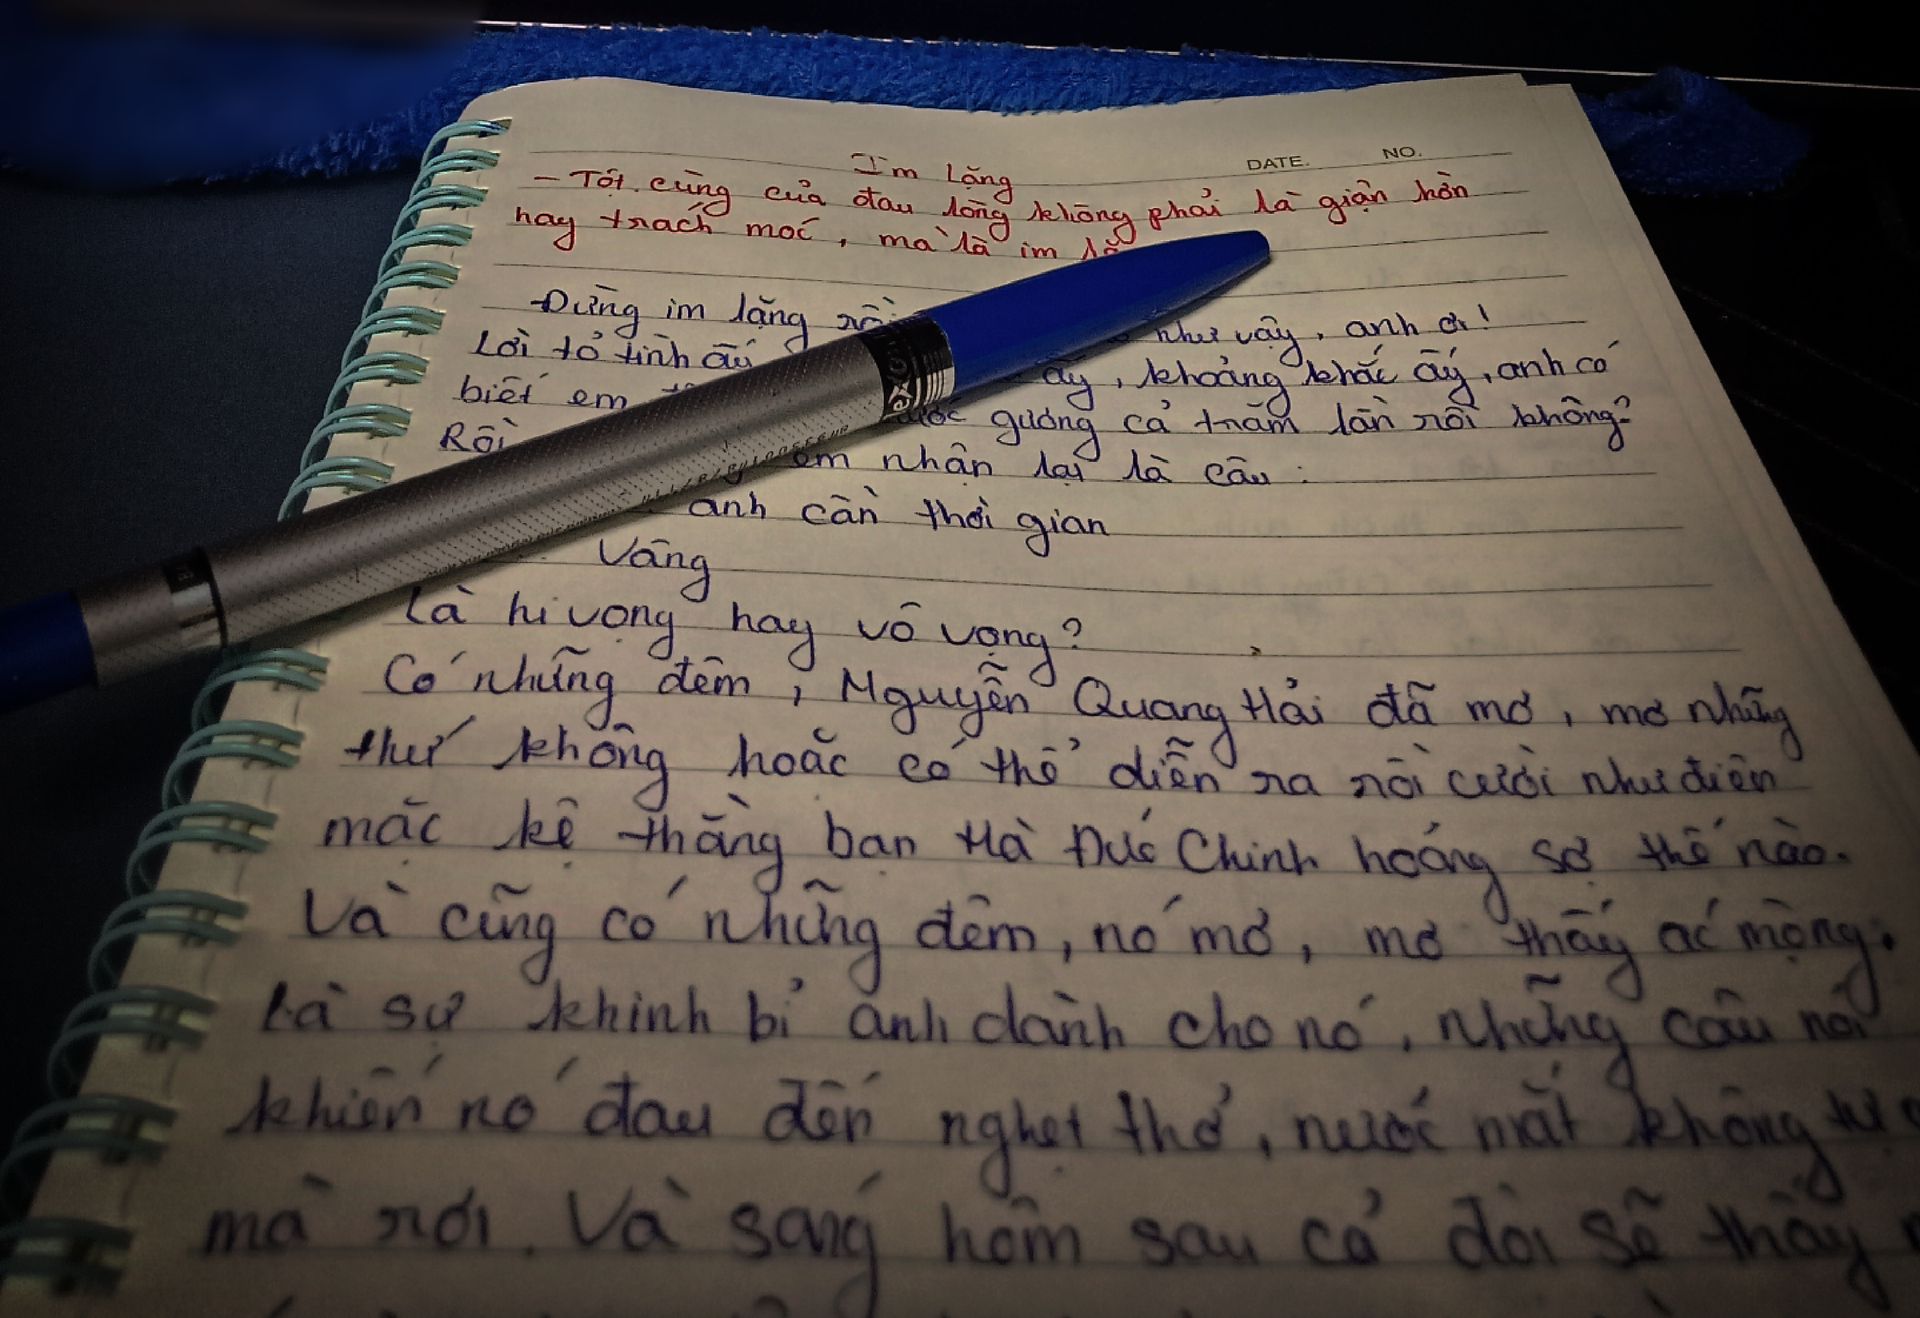 DATE. NO.
Im lặng
- Tột cùng của đau lòng không phải là giận hờn
hay trách móc, mà là im
Đừng im lặng rồi như vậy, anh ơi!
Lời tỏ tình ấy, khoảng khắc ấy, anh có
biết em gương cả trăm lần rồi không?
Rồi em nhận lại là câu:
anh cần thời gian
Vâng
Là hi vọng hay vô vọng?
Có những đêm, Nguyễn Quang Hải đã mơ, mơ những
thứ không hoặc có thể diễn ra rồi cười như điên
mặc kệ thằng bạn Hà Đức Chinh hoảng sợ thế nào.
Và cũng có những đêm, nó mơ, mơ thấy ác mộng.
Là sự khinh bỉ anh dành cho nó, những câu nói
khiến nó đau đến nghẹt thở, nước mắt không tự
mà rơi. Và sáng hôm sau cả đội sẽ thấy